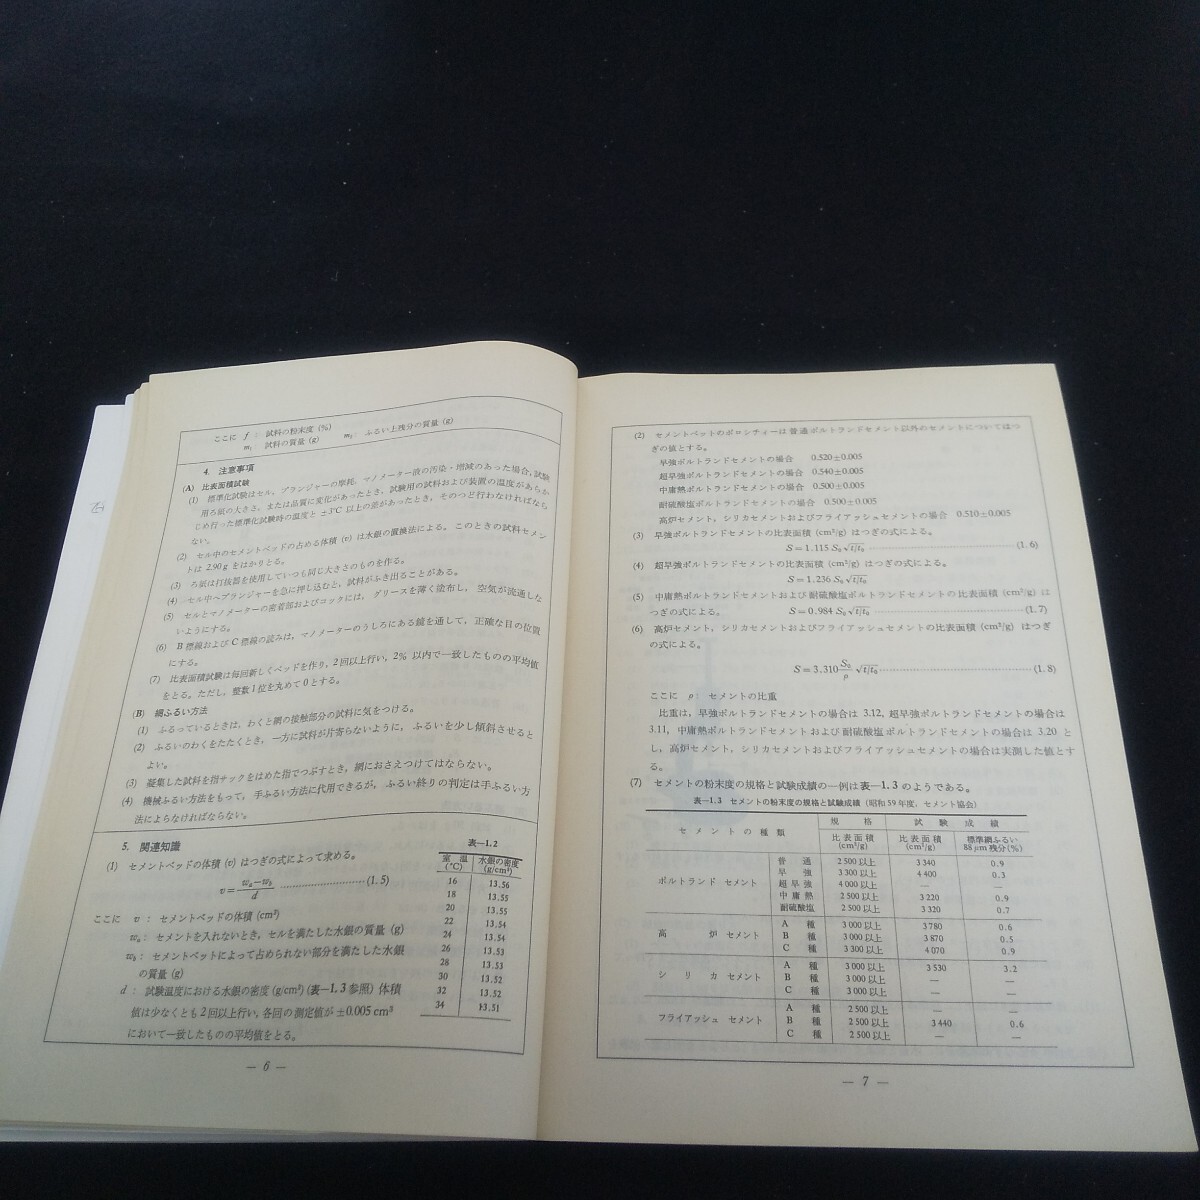 ここに f : 試料の粉末度 (%)
m₁ : 試料の質量 (g)　m₂ : ふるい上残分の質量 (g)
4. 注意事項
(A) 比表面積試験
(1) 標準化試験はセル，プランジャーの摩耗，マノメーター液の汚染・増減のあった場合，試験
用ろ紙の大きさ，または品質に変化があったとき，試験用の試料および装置の温度があらか
じめ行った標準化試験時の温度と ±3℃ 以上の差があったとき，そのつど行わなければなら
ない。
(2) セル中のセメントベッドの占める体積 (v) は水銀の置換法による。このときの試料セメン
トは 2.90g をはかりとる。
(3) ろ紙は打抜器を使用していつも同じ大きさのものを作る。
(4) セル中へプランジャーを急に押し込むと，試料がふき出ることがある。
(5) セルとマノメーターの密着部およびコックには，グリースを薄く塗布し，空気が流通しな
いようにする。
(6) B 標線および C 標線の読みは，マノメーターのうしろにある鏡を通して，正確な目の位置
にする。
(7) 比表面積試験は毎回新しくベッドを作り，2回以上行い，2% 以内で一致したものの平均値
をとる。ただし，整数1位を丸めて0とする。
(B) 網ふるい方法
(1) ふるっているときは，わくと網の接触部分の試料に気をつける。
(2) ふるいのわくをたたくとき，一方に試料が片寄らないように，ふるいを少し傾斜させると
よい。
(3) 凝集した試料を指サックをはめた指でつぶすとき，網におさえつけてはならない。
(4) 機械ふるい方法をもって，手ふるい方法に代用できるが，ふるい終りの判定は手ふるい方
法によらなければならない。
5. 関連知識
(1) セメントベッドの体積 (v) はつぎの式によって求める。
v=(wₐ−w_b)/d ……(1.5)
ここに v : セメントベッドの体積 (cm³)
wₐ : セメントを入れないとき，セルを満たした水銀の質量 (g)
w_b : セメントベットによって占められない部分を満たした水銀
の質量 (g)
d : 試験温度における水銀の密度 (g/cm³) (表—1.3参照) 体積
値は少なくとも2回以上行い，各回の測定値が ±0.005 cm³
において一致したものの平均値をとる。
表—1.2
室温 (℃)　水銀の密度 (g/cm³)
16　13.56
18　13.55
20　13.55
22　13.54
24　13.54
26　13.53
28　13.53
30　13.52
32　13.52
34　13.51
— 6 —
(2) セメントベットのポロシティーは普通ポルトランドセメント以外のセメントについてはつ
ぎの値とする。
早強ポルトランドセメントの場合　0.520±0.005
超早強ポルトランドセメントの場合　0.540±0.005
中庸熱ポルトランドセメントの場合　0.500±0.005
耐硫酸塩ポルトランドセメントの場合　0.500±0.005
高炉セメント，シリカセメントおよびフライアッシュセメントの場合　0.510±0.005
(3) 早強ポルトランドセメントの比表面積 (cm²/g) はつぎの式による。
S=1.115 S₀√t/t₀ ……(1.6)
(4) 超早強ポルトランドセメントの比表面積 (cm²/g) はつぎの式による。
S=1.236 S₀√t/t₀
(5) 中庸熱ポルトランドセメントおよび耐硫酸塩ポルトランドセメントの比表面積 (cm²/g) は
つぎの式による。　S=0.984 S₀√t/t₀ ……(1.7)
(6) 高炉セメント，シリカセメントおよびフライアッシュセメントの比表面積 (cm²/g) はつぎ
の式による。
S=3.310 S₀/ρ √t/t₀ ……(1.8)
ここに ρ : セメントの比重
比重は，早強ポルトランドセメントの場合は 3.12, 超早強ポルトランドセメントの場合は
3.11, 中庸熱ポルトランドセメントおよび耐硫酸塩ポルトランドセメントの場合は 3.20 と
し，高炉セメント，シリカセメントおよびフライアッシュセメントの場合は実測した値とす
る。
(7) セメントの粉末度の規格と試験成績の一例は表—1.3 のようである。
表—1.3 セメントの粉末度の規格と試験成績 (昭和59年度，セメント協会)
セメントの種類　規格　試験成績
比表面積 (cm²/g)　比表面積 (cm²/g)　標準網ふるい 88μm残分(%)
ポルトランド セメント　普通　2500以上　3340　0.9
早強　3300以上　4400　0.3
超早強　4000以上　—　—
中庸熱　2500以上　3220　0.9
耐硫酸塩　2500以上　3320　0.7
高炉セメント　A種　3000以上　3780　0.6
B種　3000以上　3870　0.5
C種　3300以上　4070　0.9
シリカセメント　A種　3000以上　3530　3.2
B種　3000以上　—　—
C種　3000以上　—　—
フライアッシュ セメント　A種　2500以上　—　—
B種　2500以上　3440　0.6
C種　2500以上　—　—
— 7 —